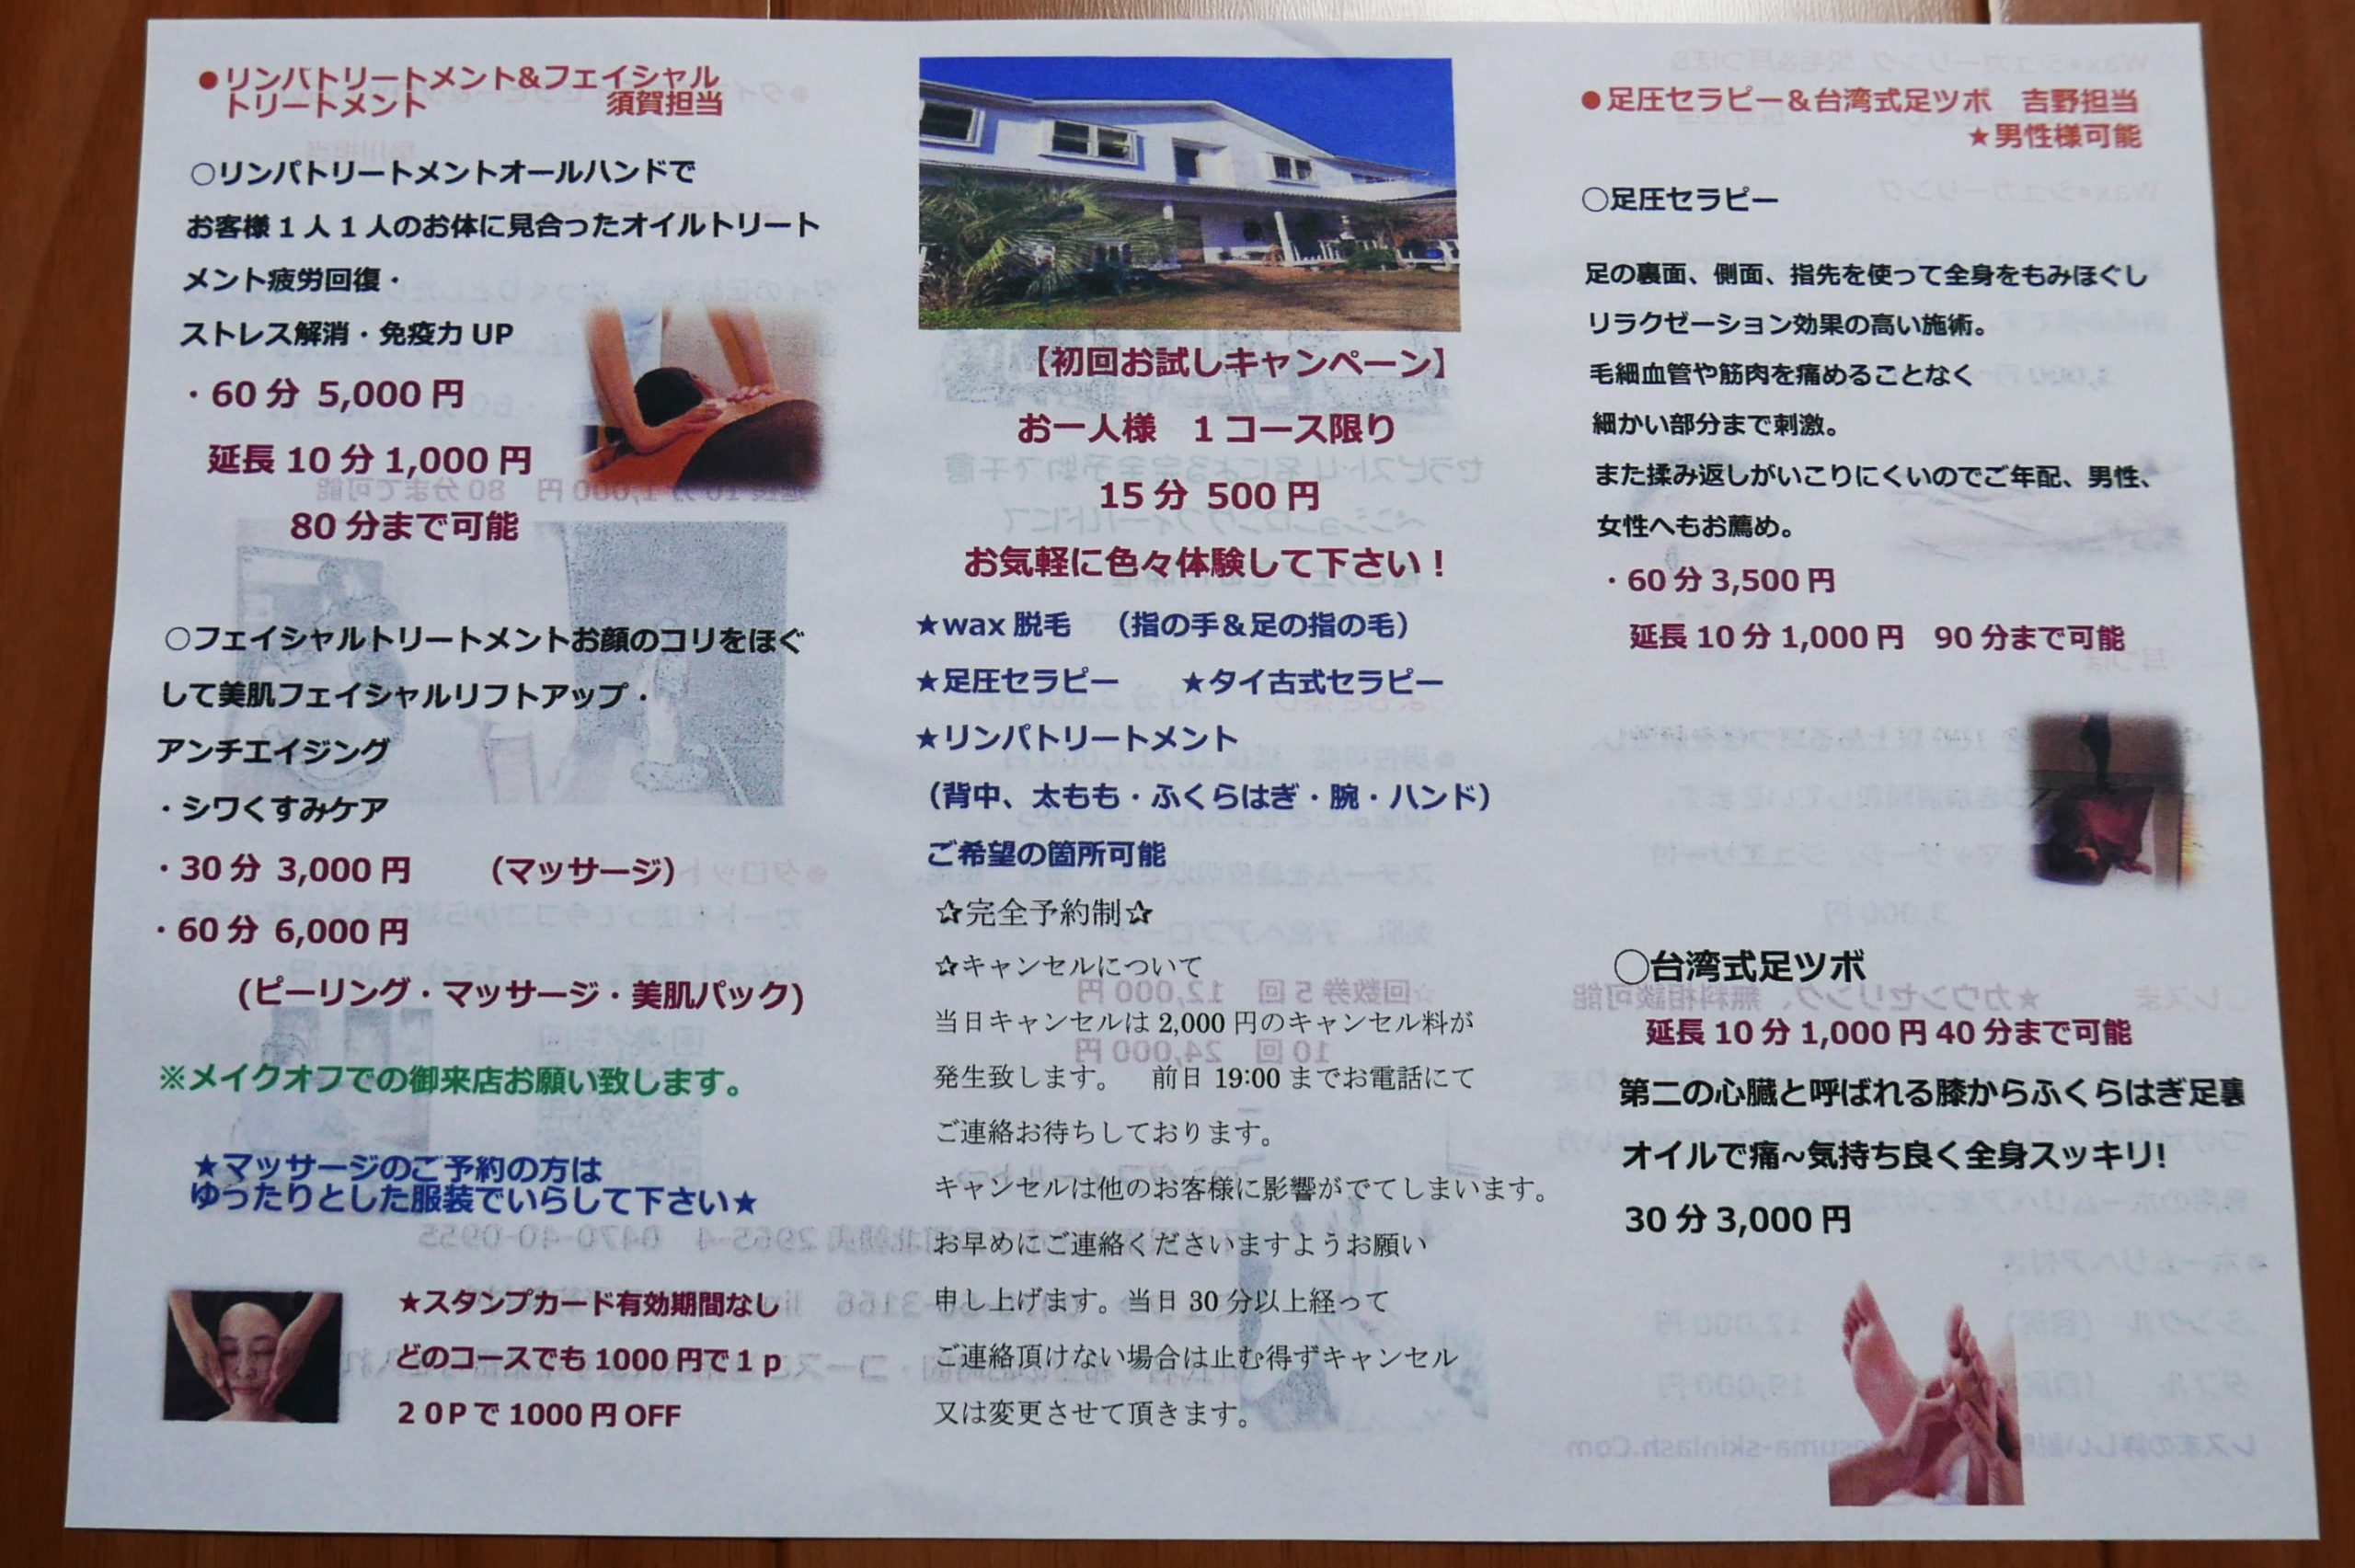 ●リンパトリートメント&フェイシャル
トリートメント 須賀担当
○リンパトリートメントオールハンドで
お客様1人1人のお体に見合ったオイルトリート
メント疲労回復・
ストレス解消・免疫力UP
・60分 5,000円
延長10分1,000円
80分まで可能
○フェイシャルトリートメントお顔のコリをほぐ
して美肌フェイシャルリフトアップ・
アンチエイジング
・シワくすみケア
・30分 3,000円 (マッサージ)
・60分 6,000円
(ピーリング・マッサージ・美肌パック)
※メイクオフでの御来店お願い致します。
★マッサージのご予約の方は
ゆったりとした服装でいらして下さい★
★スタンプカード有効期間なし
どのコースでも1000円で1p
20Pで1000円OFF
【初回お試しキャンペーン】
お一人様 1コース限り
15分 500円
お気軽に色々体験して下さい!
★wax脱毛 (指の手&足の指の毛)
★足圧セラピー ★タイ古式セラピー
★リンパトリートメント
(背中、太もも・ふくらはぎ・腕・ハンド)
ご希望の箇所可能
☆完全予約制☆
☆キャンセルについて
当日キャンセルは2,000円のキャンセル料が
発生致します。 前日19:00までお電話にて
ご連絡お待ちしております。
キャンセルは他のお客様に影響がでてしまいます。
お早めにご連絡くださいますようお願い
申し上げます。当日30分以上経って
ご連絡頂けない場合は止む得ずキャンセル
又は変更させて頂きます。
●足圧セラピー&台湾式足ツボ 吉野担当
★男性様可能
○足圧セラピー
足の裏面、側面、指先を使って全身をもみほぐし
リラクゼーション効果の高い施術。
毛細血管や筋肉を痛めることなく
細かい部分まで刺激。
また揉み返しがいこりにくいのでご年配、男性、
女性へもお薦め。
・60分3,500円
延長10分1,000円 90分まで可能
○台湾式足ツボ
延長10分1,000円40分まで可能
第二の心臓と呼ばれる膝からふくらはぎ足裏
オイルで痛~気持ち良く全身スッキリ!
30分3,000円